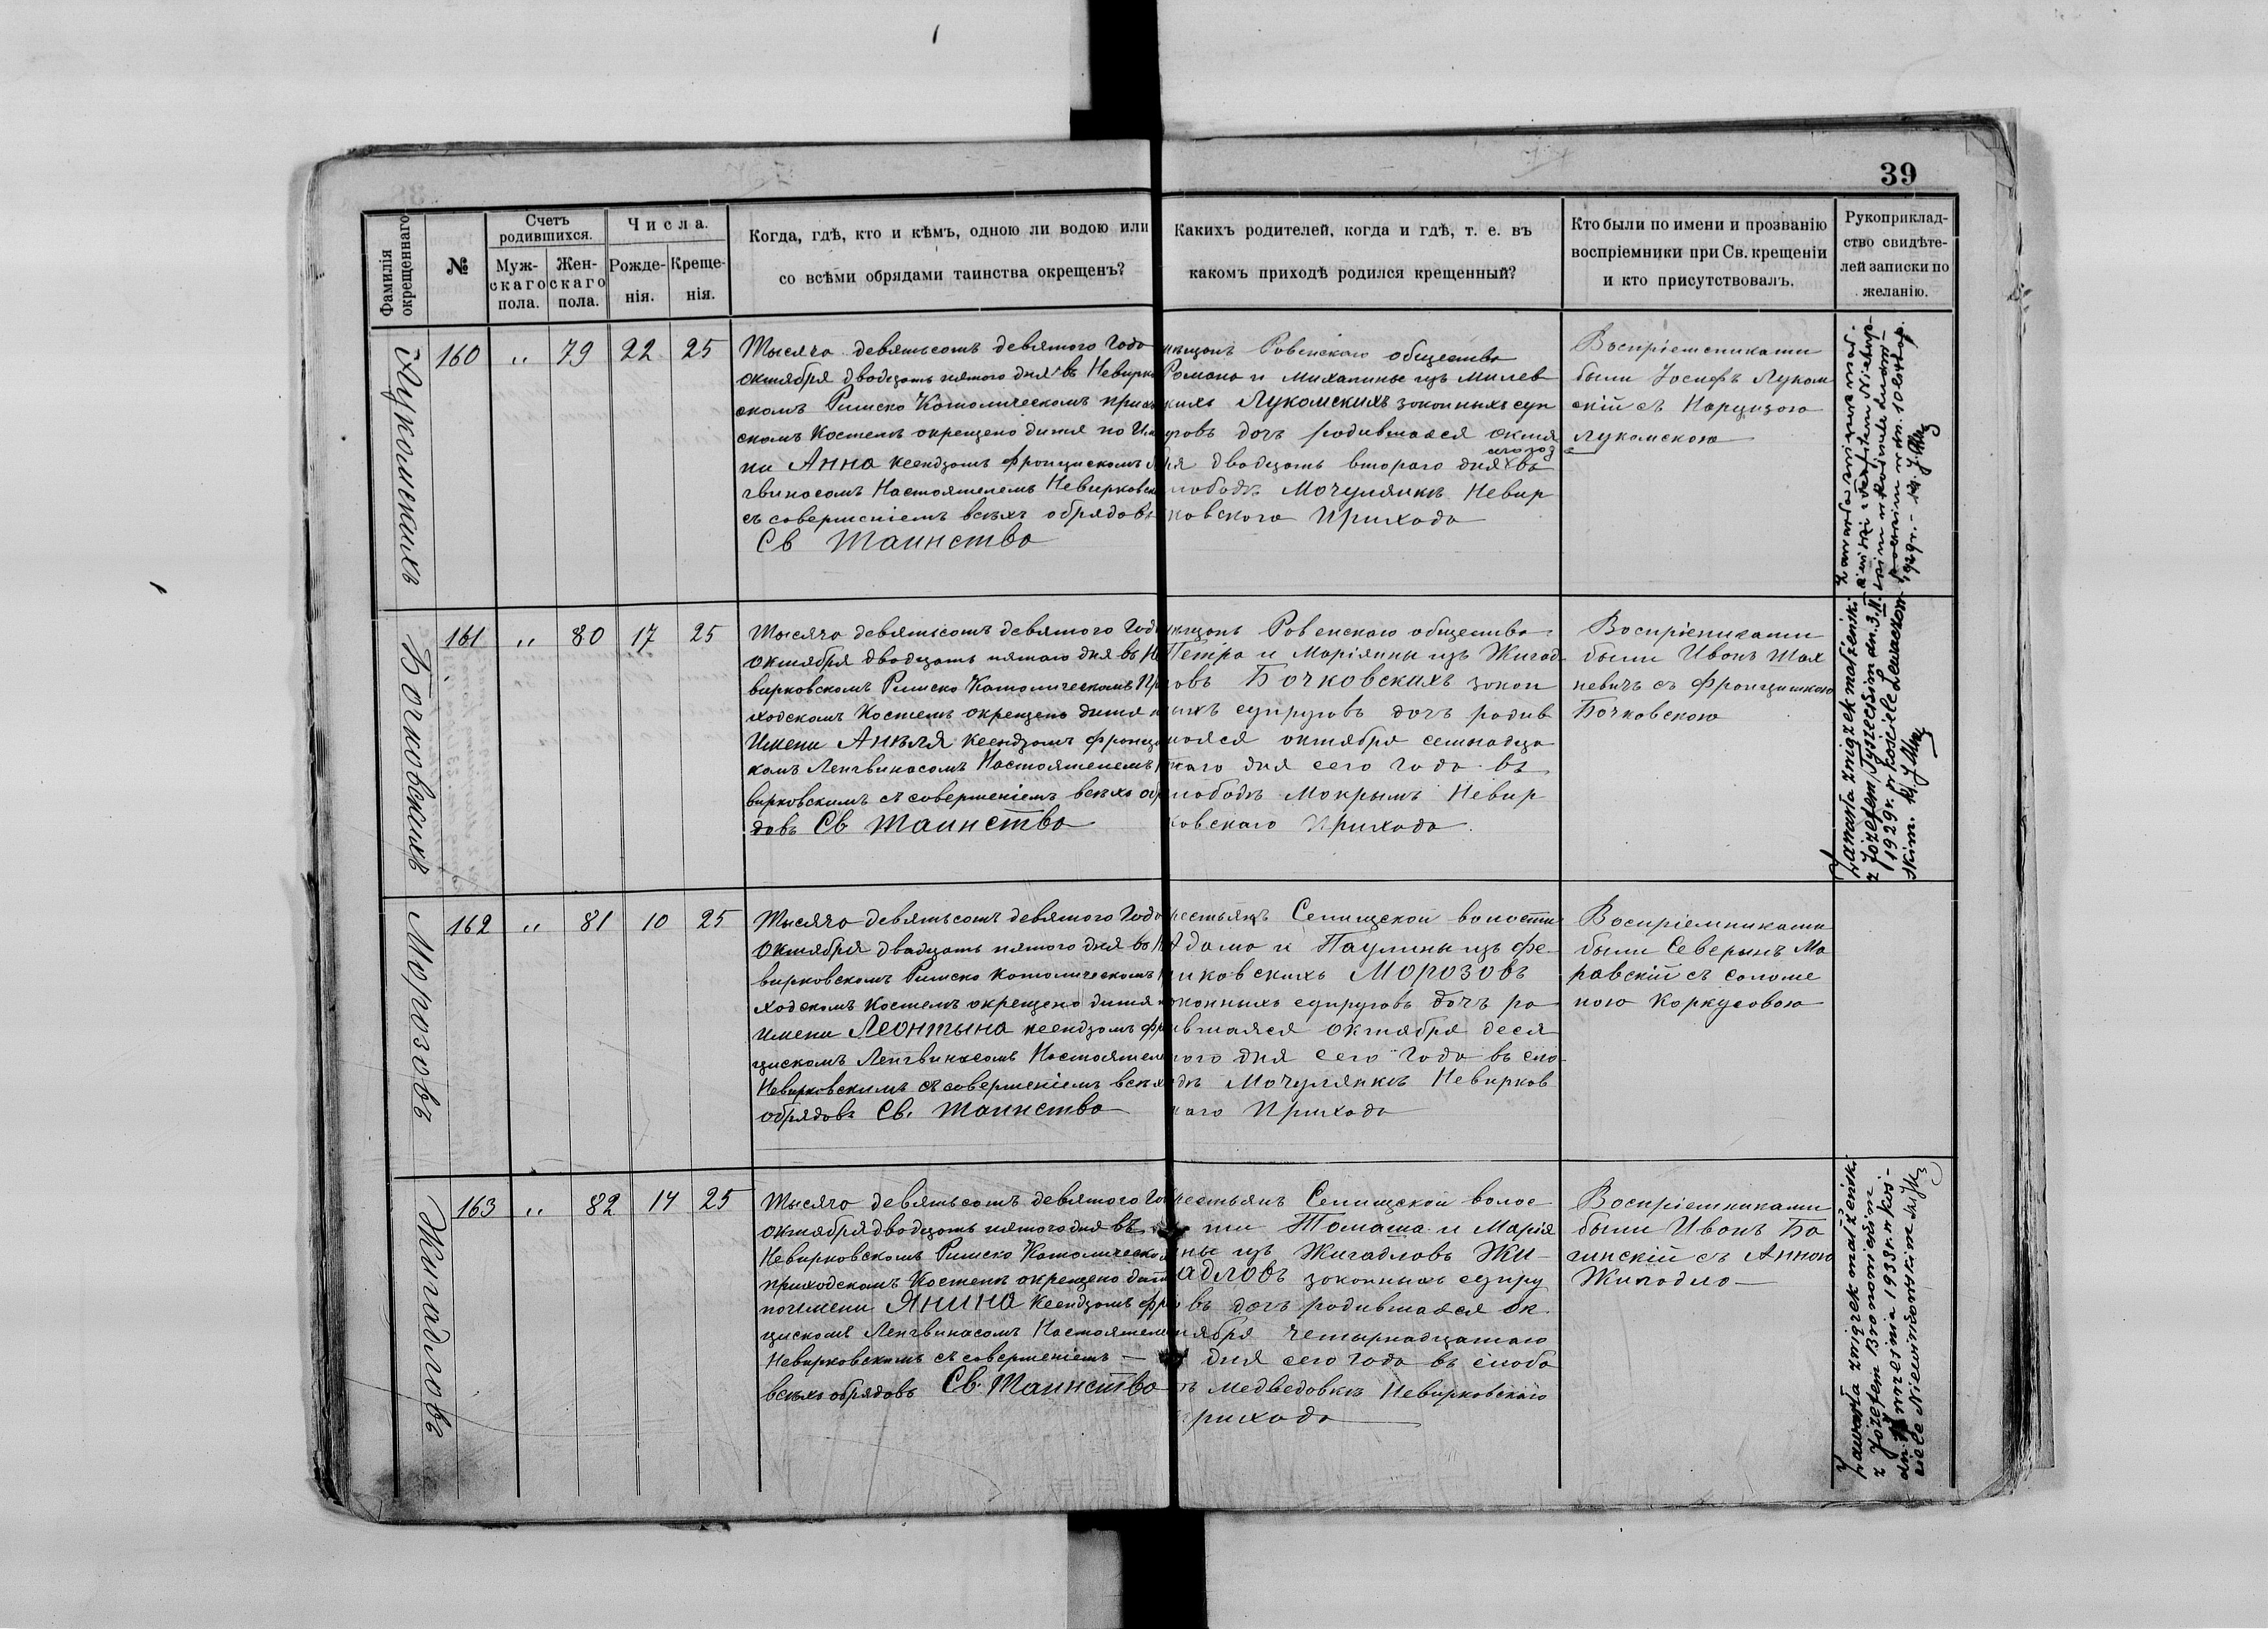 39
Фамилія окрещеннаго
№
Счетъ родившихся.
Мужскаго пола.
Женскаго пола.
Числа.
Рожденія.
Крещенія.
Когда, гдѣ, кто и кѣмъ, одною ли водою или
со всѣми обрядами таинства окрещенъ?
Какихъ родителей, когда и гдѣ, т. е. въ
какомъ приходѣ родился крещенный?
Кто были по имени и прозванію
воспріемники при Св. крещеніи
и кто присутствовалъ.
Рукоприклад-
ство свидѣте-
лей записки по
желанію.
Лукомскихъ
160 " 79 22 25
Тысяча девятьсотъ девятого Года
октября двадцать пятого дня въ Невирко
скомъ Римско Католическомъ прихо
скомъ Костелѣ окрещено дитя по Име
ни Анна ксендзомъ Францискомъ Ле
гвинасомъ Настоятелемъ Невирковск
съ совершеніемъ всѣхъ обрядовъ
Св Таинства
мѣщанъ Ровенскаго общества
Романа и Михалины изъ Милев
кихъ Лукомскихъ законныхъ суп
уговъ дочь родившаяся октя
сего год
ря двадцать втораго дня въ
лободѣ Мочулянкѣ Невир
ковского Прихода
Воспріемниками
были Іосифъ Луком
скій съ Нарцизою
Лукомскою
Бочковскихъ
161 " 80 17 25
Тысяча девятьсотъ девятого Год
октября двадцать пятаго дня въ Не
вирковскомъ Римско Католическомъ Пр
ходскомъ Костелѣ окрещено дитя п
Имени Анѣля ксендзомъ Франци
комъ Ленгвинасомъ Настоятелемъ Н
вирковскимъ съ совершеніемъ всѣхъ об
довъ Св Таинства
мѣщанъ Ровенскаго общества
Петра и Маріянны изъ Жигад
овъ Бочковскихъ закон
ныхъ супруговъ дочь родив
шаяся октября семнадца
таго дня сего Года въ
слободѣ Мокрымъ Невир
ковскаго Прихода
Воспріениками
были Иванъ Мах
невичъ съ Францишкою
Бочковскою
Zawarła związek małżeński
z Józefem Tyszeckim dn. 3.II.
1929 r. w kościele Lewaczow
skim.
Морозовъ
162 " 81 10 25
Тысяча девятьсотъ девятого Года
Октября двадцать пятого дня во Не
вирковскомъ Римско Католическомъ П
ходскомъ Костелѣ окрещено дитя п
Имени Леонтына ксендзомъ Фр
цискомъ Ленгвинасомъ Настоятеле
Невирковскимъ съ совершеніемъ всѣх
обрядовъ Св. Таинства
рестьянъ Селищской волости
Адама и Паулины изъ Фе
никовскихъ Морозовъ
аконныхъ супруговъ дочь ро
ившаяся октября деся
таго дня сего Года въ сло
одѣ Мочулянкѣ Невирков
каго Прихода
Воспріемниками
были Северынъ Мо
равскій съ Саломе
ною Коркусовою
Жигадловъ
163 " 82 14 25
Тысяча девятьсотъ девятого Го
октября двадцать пятого дня въ
Невирковскомъ Римско Католическом
приходскомъ Костелѣ окрещено дитя
по имени Янина ксендзомъ Фр
цискомъ Ленгвинасомъ Настоятелем
Невирковскимъ съ совершеніемъ —
всѣхъ обрядовъ Св. Таинства
рестьянъ Селищской волос
ти Томаша и Марія
ны изъ Жигадловъ Жи-
адловъ законныхъ супру
въ дочь родившаяся ок
тября четырнадцатаго
дня сего Года въ слобо
ѣ Медведовкѣ Невирковскаго
рихода
Воспріемниками
были Иванъ Ба
гинскій съ Анною
Жигадло
Zawarła związek małżeński
z Józefem Bronowickim
września 1933 r. w koś-
ciele Niewirkowskim